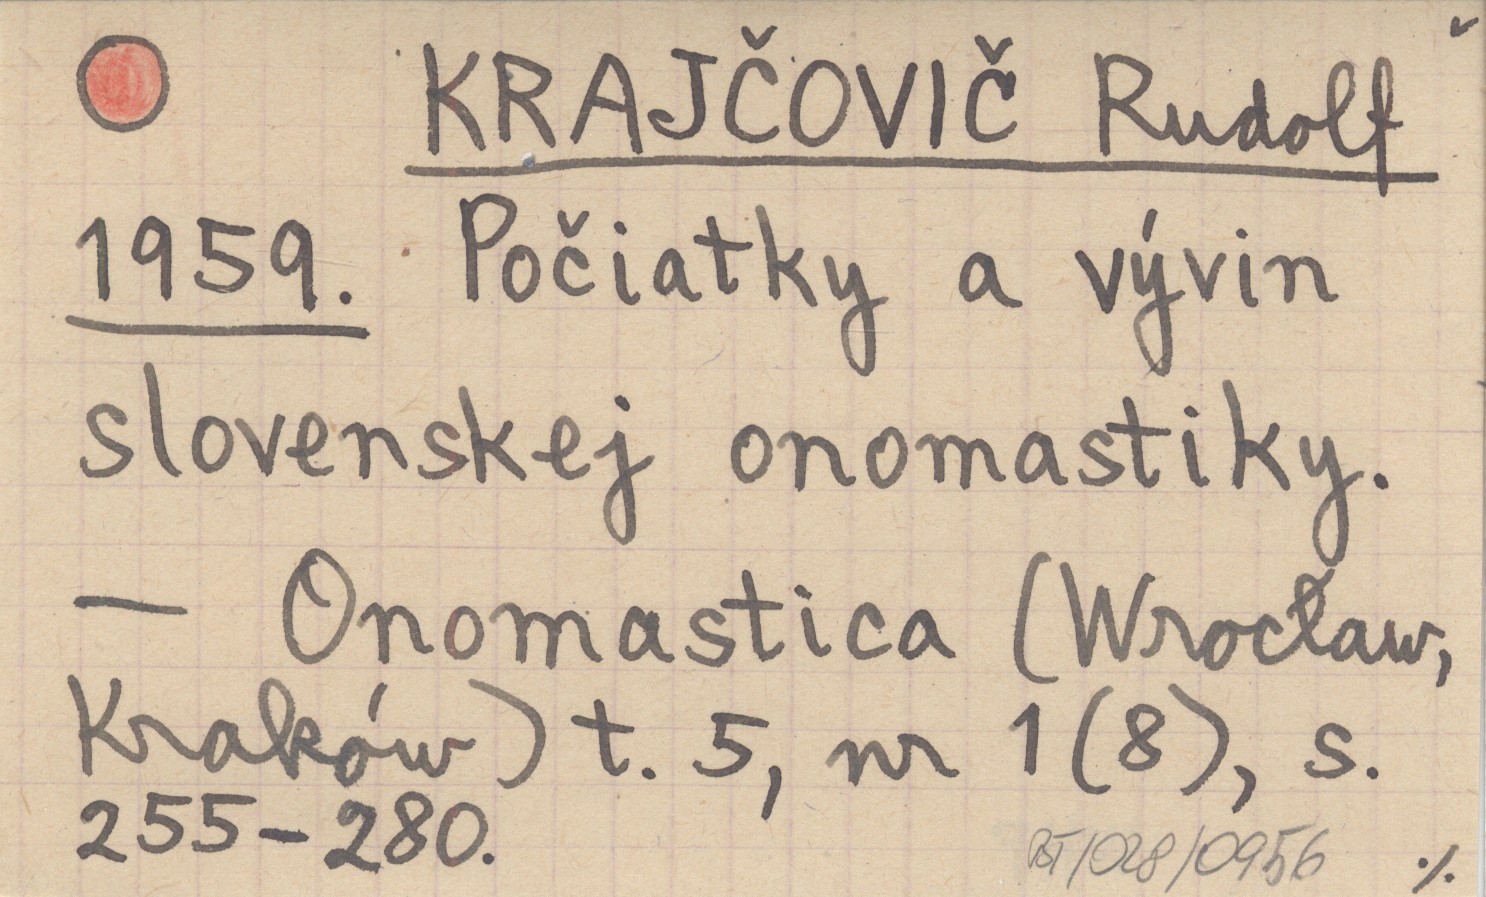 KRAJČOVIČ Rudolf
1959. Počiatky a vývin
slovenskej onomastiky.
— Onomastica (Wrocław,
Kraków) t. 5, nr 1(8), s.
255–280.
BT/028/0956 ./.